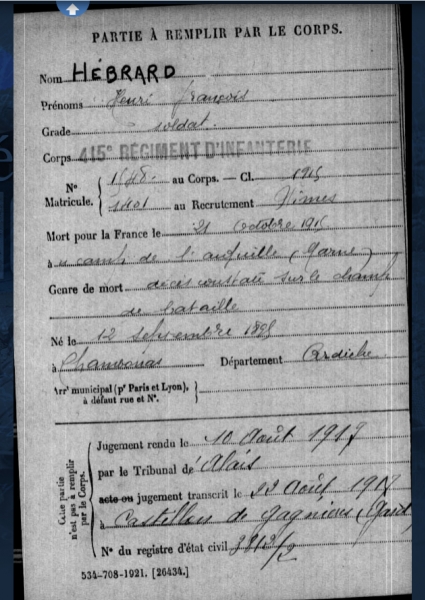 PARTIE À REMPLIR PAR LE CORPS.
Nom HÉBRARD
Prénoms Henri François
Grade soldat
Corps 415e RÉGIMENT D'INFANTERIE
N° Matricule. au Corps. — Cl. 1915
au Recrutement Nîmes
Mort pour la France le 21 octobre 1915
à camp de l' (Marne)
Genre de mort décès constaté sur le champ
de bataille
Né le 12 septembre 1895
à Chambonas Département Ardèche
Arrt municipal (pr Paris et Lyon),
à défaut rue et N°.
Cette partie
n'est pas à remplir
par le Corps.
Jugement rendu le 10 Août 1917
par le Tribunal de Alais
acte ou jugement transcrit le 22 Août 1917
à Castillon de Gagnières (Gard)
N° du registre d'état civil 3812/2
534-708-1921. [26434.]